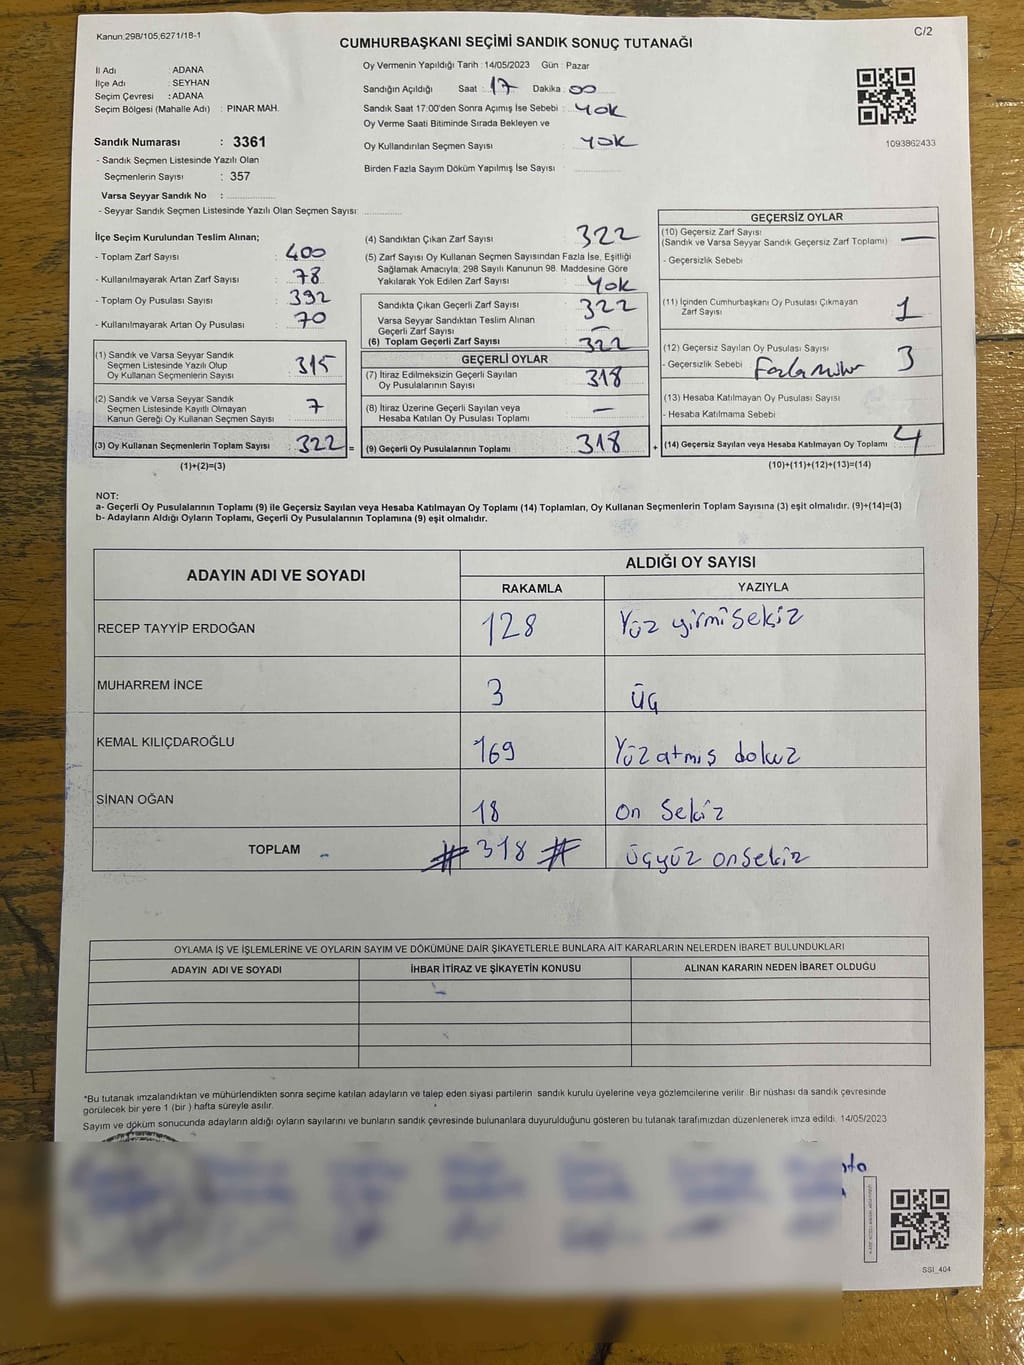 Kanun.298/105,6271/18-1
C/2
CUMHURBAŞKANI SEÇİMİ SANDIK SONUÇ TUTANAĞI
İl Adı : ADANA
İlçe Adı : SEYHAN
Seçim Çevresi : ADANA
Seçim Bölgesi (Mahalle Adı) : PINAR MAH.
Sandık Numarası : 3361
- Sandık Seçmen Listesinde Yazılı Olan
Seçmenlerin Sayısı : 357
Varsa Seyyar Sandık No :
- Seyyar Sandık Seçmen Listesinde Yazılı Olan Seçmen Sayısı:
Oy Vermenin Yapıldığı Tarih : 14/05/2023 Gün : Pazar
Sandığın Açıldığı Saat : 17 Dakika : 00
Sandık Saat 17:00'den Sonra Açımış İse Sebebi : Yok
Oy Verme Saati Bitiminde Sırada Bekleyen ve
Oy Kullandırılan Seçmen Sayısı : Yok
Birden Fazla Sayım Döküm Yapılmış İse Sayısı :
1093862433
İlçe Seçim Kurulundan Teslim Alınan;
- Toplam Zarf Sayısı : 400
- Kullanılmayarak Artan Zarf Sayısı : 78
- Toplam Oy Pusulası Sayısı : 392
- Kullanılmayarak Artan Oy Pusulası : 70
(1) Sandık ve Varsa Seyyar Sandık
Seçmen Listesinde Yazılı Olup
Oy Kullanan Seçmenlerin Sayısı : 315
(2) Sandık ve Varsa Seyyar Sandık
Seçmen Listesinde Kayıtlı Olmayan
Kanun Gereği Oy Kullanan Seçmen Sayısı : 7
(3) Oy Kullanan Seçmenlerin Toplam Sayısı : 322 =
(1)+(2)=(3)
(4) Sandıktan Çıkan Zarf Sayısı : 322
(5) Zarf Sayısı Oy Kullanan Seçmen Sayısından Fazla İse, Eşitliği
Sağlamak Amacıyla; 298 Sayılı Kanunun 98. Maddesine Göre
Yakılarak Yok Edilen Zarf Sayısı : Yok
Sandıkta Çıkan Geçerli Zarf Sayısı : 322
Varsa Seyyar Sandıktan Teslim Alınan
Geçerli Zarf Sayısı : —
(6) Toplam Geçerli Zarf Sayısı : 322
GEÇERLİ OYLAR
(7) İtiraz Edilmeksizin Geçerli Sayılan
Oy Pusulalarının Sayısı : 318
(8) İtiraz Üzerine Geçerli Sayılan veya
Hesaba Katılan Oy Pusulası Toplamı : —
(9) Geçerli Oy Pusulalarının Toplamı : 318 +
GEÇERSİZ OYLAR
(10) Geçersiz Zarf Sayısı
(Sandık ve Varsa Seyyar Sandık Geçersiz Zarf Toplamı) : —
- Geçersizlik Sebebi
(11) İçinden Cumhurbaşkanı Oy Pusulası Çıkmayan
Zarf Sayısı : 1
(12) Geçersiz Sayılan Oy Pusulası Sayısı : 3
- Geçersizlik Sebebi : Fazla Mühür
(13) Hesaba Katılmayan Oy Pusulası Sayısı
- Hesaba Katılmama Sebebi
(14) Geçersiz Sayılan veya Hesaba Katılmayan Oy Toplamı : 4
(10)+(11)+(12)+(13)=(14)
NOT:
a- Geçerli Oy Pusulalarının Toplamı (9) ile Geçersiz Sayılan veya Hesaba Katılmayan Oy Toplamı (14) Toplamları, Oy Kullanan Seçmenlerin Toplam Sayısına (3) eşit olmalıdır. (9)+(14)=(3)
b- Adayların Aldığı Oyların Toplamı, Geçerli Oy Pusulalarının Toplamına (9) eşit olmalıdır.
ADAYIN ADI VE SOYADI
ALDIĞI OY SAYISI
RAKAMLA YAZIYLA
RECEP TAYYİP ERDOĞAN 128 Yüz yirmi sekiz
MUHARREM İNCE 3 üç
KEMAL KILIÇDAROĞLU 169 Yüz atmış dokuz
SİNAN OĞAN 18 on sekiz
TOPLAM # 318 # üçyüz onsekiz
OYLAMA İŞ VE İŞLEMLERİNE VE OYLARIN SAYIM VE DÖKÜMÜNE DAİR ŞİKAYETLERLE BUNLARA AİT KARARLARIN NELERDEN İBARET BULUNDUKLARI
ADAYIN ADI VE SOYADI İHBAR İTİRAZ VE ŞİKAYETİN KONUSU ALINAN KARARIN NEDEN İBARET OLDUĞU
*Bu tutanak imzalandıktan ve mühürlendikten sonra seçime katılan adayların ve talep eden siyasi partilerin sandık kurulu üyelerine veya gözlemcilerine verilir. Bir nüshası da sandık çevresinde
görülecek bir yere 1 (bir ) hafta süreyle asılır.
Sayım ve döküm sonucunda adayların aldığı oyların sayılarını ve bunların sandık çevresinde bulunanlara duyurulduğunu gösteren bu tutanak tarafımızdan düzenlenerek imza edildi. 14/05/2023
SSI_404